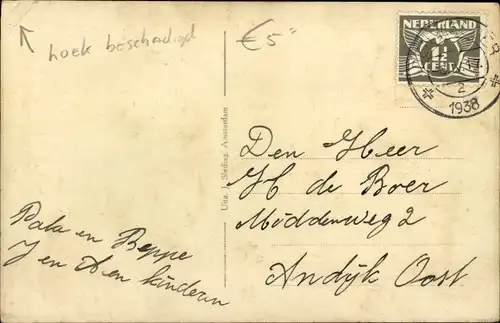 hoek beschadigd
€5"
NEDERLAND
1½
CENT
2
1938
Uitg. J. Sleding, Amsterdam
Den Heer
H de Boer
Middenweg 2
Andijk Oost
en Beppe
J en A en kinderen